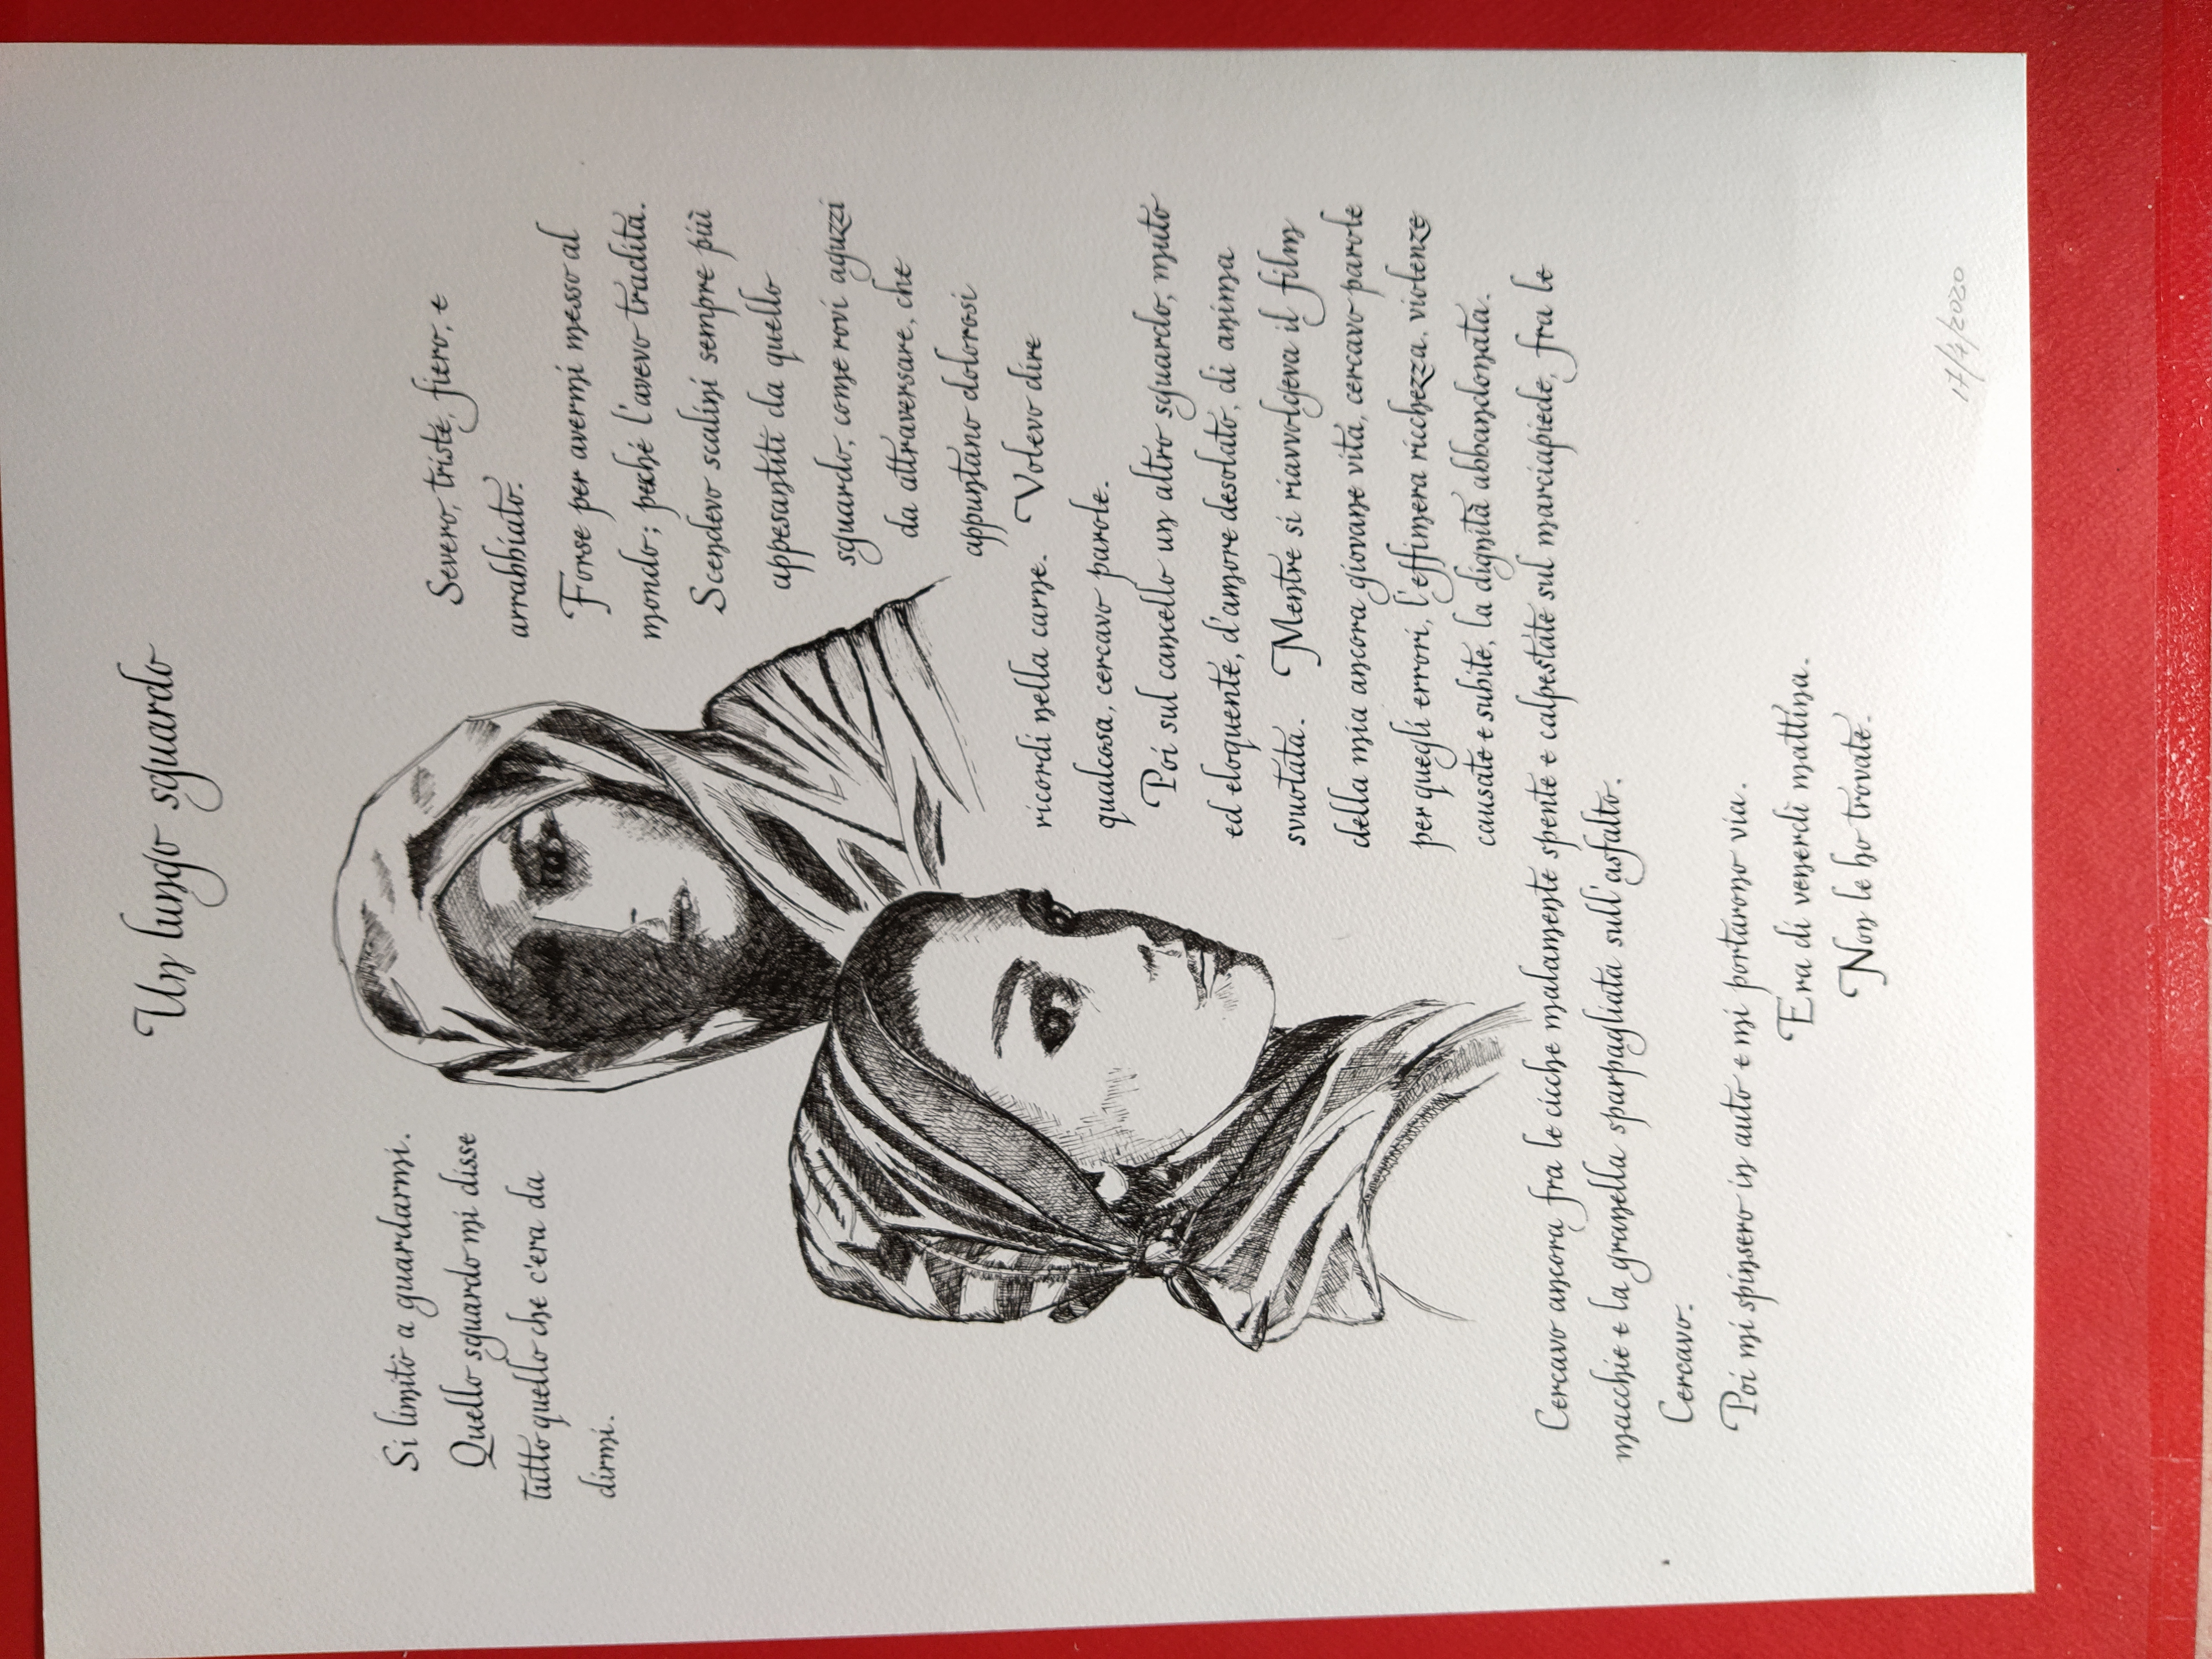 Un lungo sguardo
Si limitò a guardarmi.
Quello sguardo mi disse
tutto quello che c'era da
dirmi.
Severo, triste, fiero, e
arrabbiato.
Forse per avermi messo al
mondo; perché l'avevo tradita.
Scendevo scalini sempre più
appesantiti da quello
sguardo, come rovi aguzzi
da attraversare, che
appuntano dolorosi
ricordi nella carne. Volevo dire
qualcosa, cercavo parole.
Poi sul cancello un altro sguardo, muto
ed eloquente, d'amore desolato, di anima
svuotata. Mentre si riavvolgeva il film
della mia ancora giovane vita, cercavo parole
per quegli errori, l'effimera ricchezza, violenze
causate e subite, la dignità abbandonata.
Cercavo ancora fra le cicche malamente spente e calpestate sul marciapiede, fra le
macchie e la granella sparpagliata sull'asfalto.
Cercavo.
Poi mi spinsero in auto e mi portarono via.
Era di venerdì mattina.
Non le ho trovate.
17/4/2020